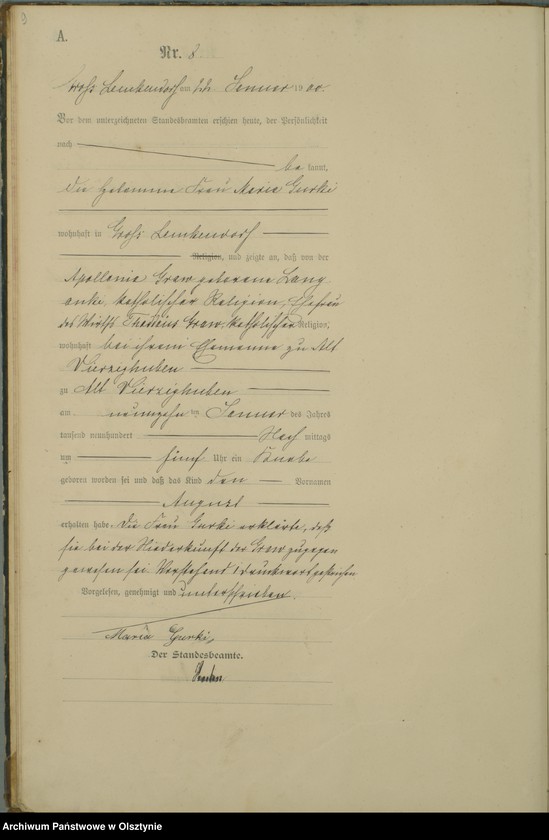 9
A.
Nr. 8
Gross Lemkendorf am 22. Januar 1900.
Vor dem unterzeichneten Standesbeamten erschien heute, der Persönlichkeit
nach
bekannt,
die Hebamme Frau Maria Gurki
wohnhaft in Gross Lemkendorf
Religion, und zeigte an, daß von der
Apollonia Graw geborene Lang
anki, katholischer Religion, Ehefrau
des Wirths Graw, katholischer Religion,
wohnhaft bei ihrem Ehemanne zu Alt
Vierzighuben
zu Alt Vierzighuben
am neunzehnten Januar des Jahres
tausend neunhundert Nachmittags
um fünf Uhr ein Knabe
geboren worden sei und daß das Kind den Vornamen
August
erhalten habe. Die Frau Gurki erklärte, daß
sie bei der Niederkunft der Graw zugegen
gewesen sei. Vorstehend 1 Druckwort gestrichen.
Vorgelesen, genehmigt und unterschrieben.
Maria Gurki
Der Standesbeamte.
Archiwum Państwowe w Olsztynie